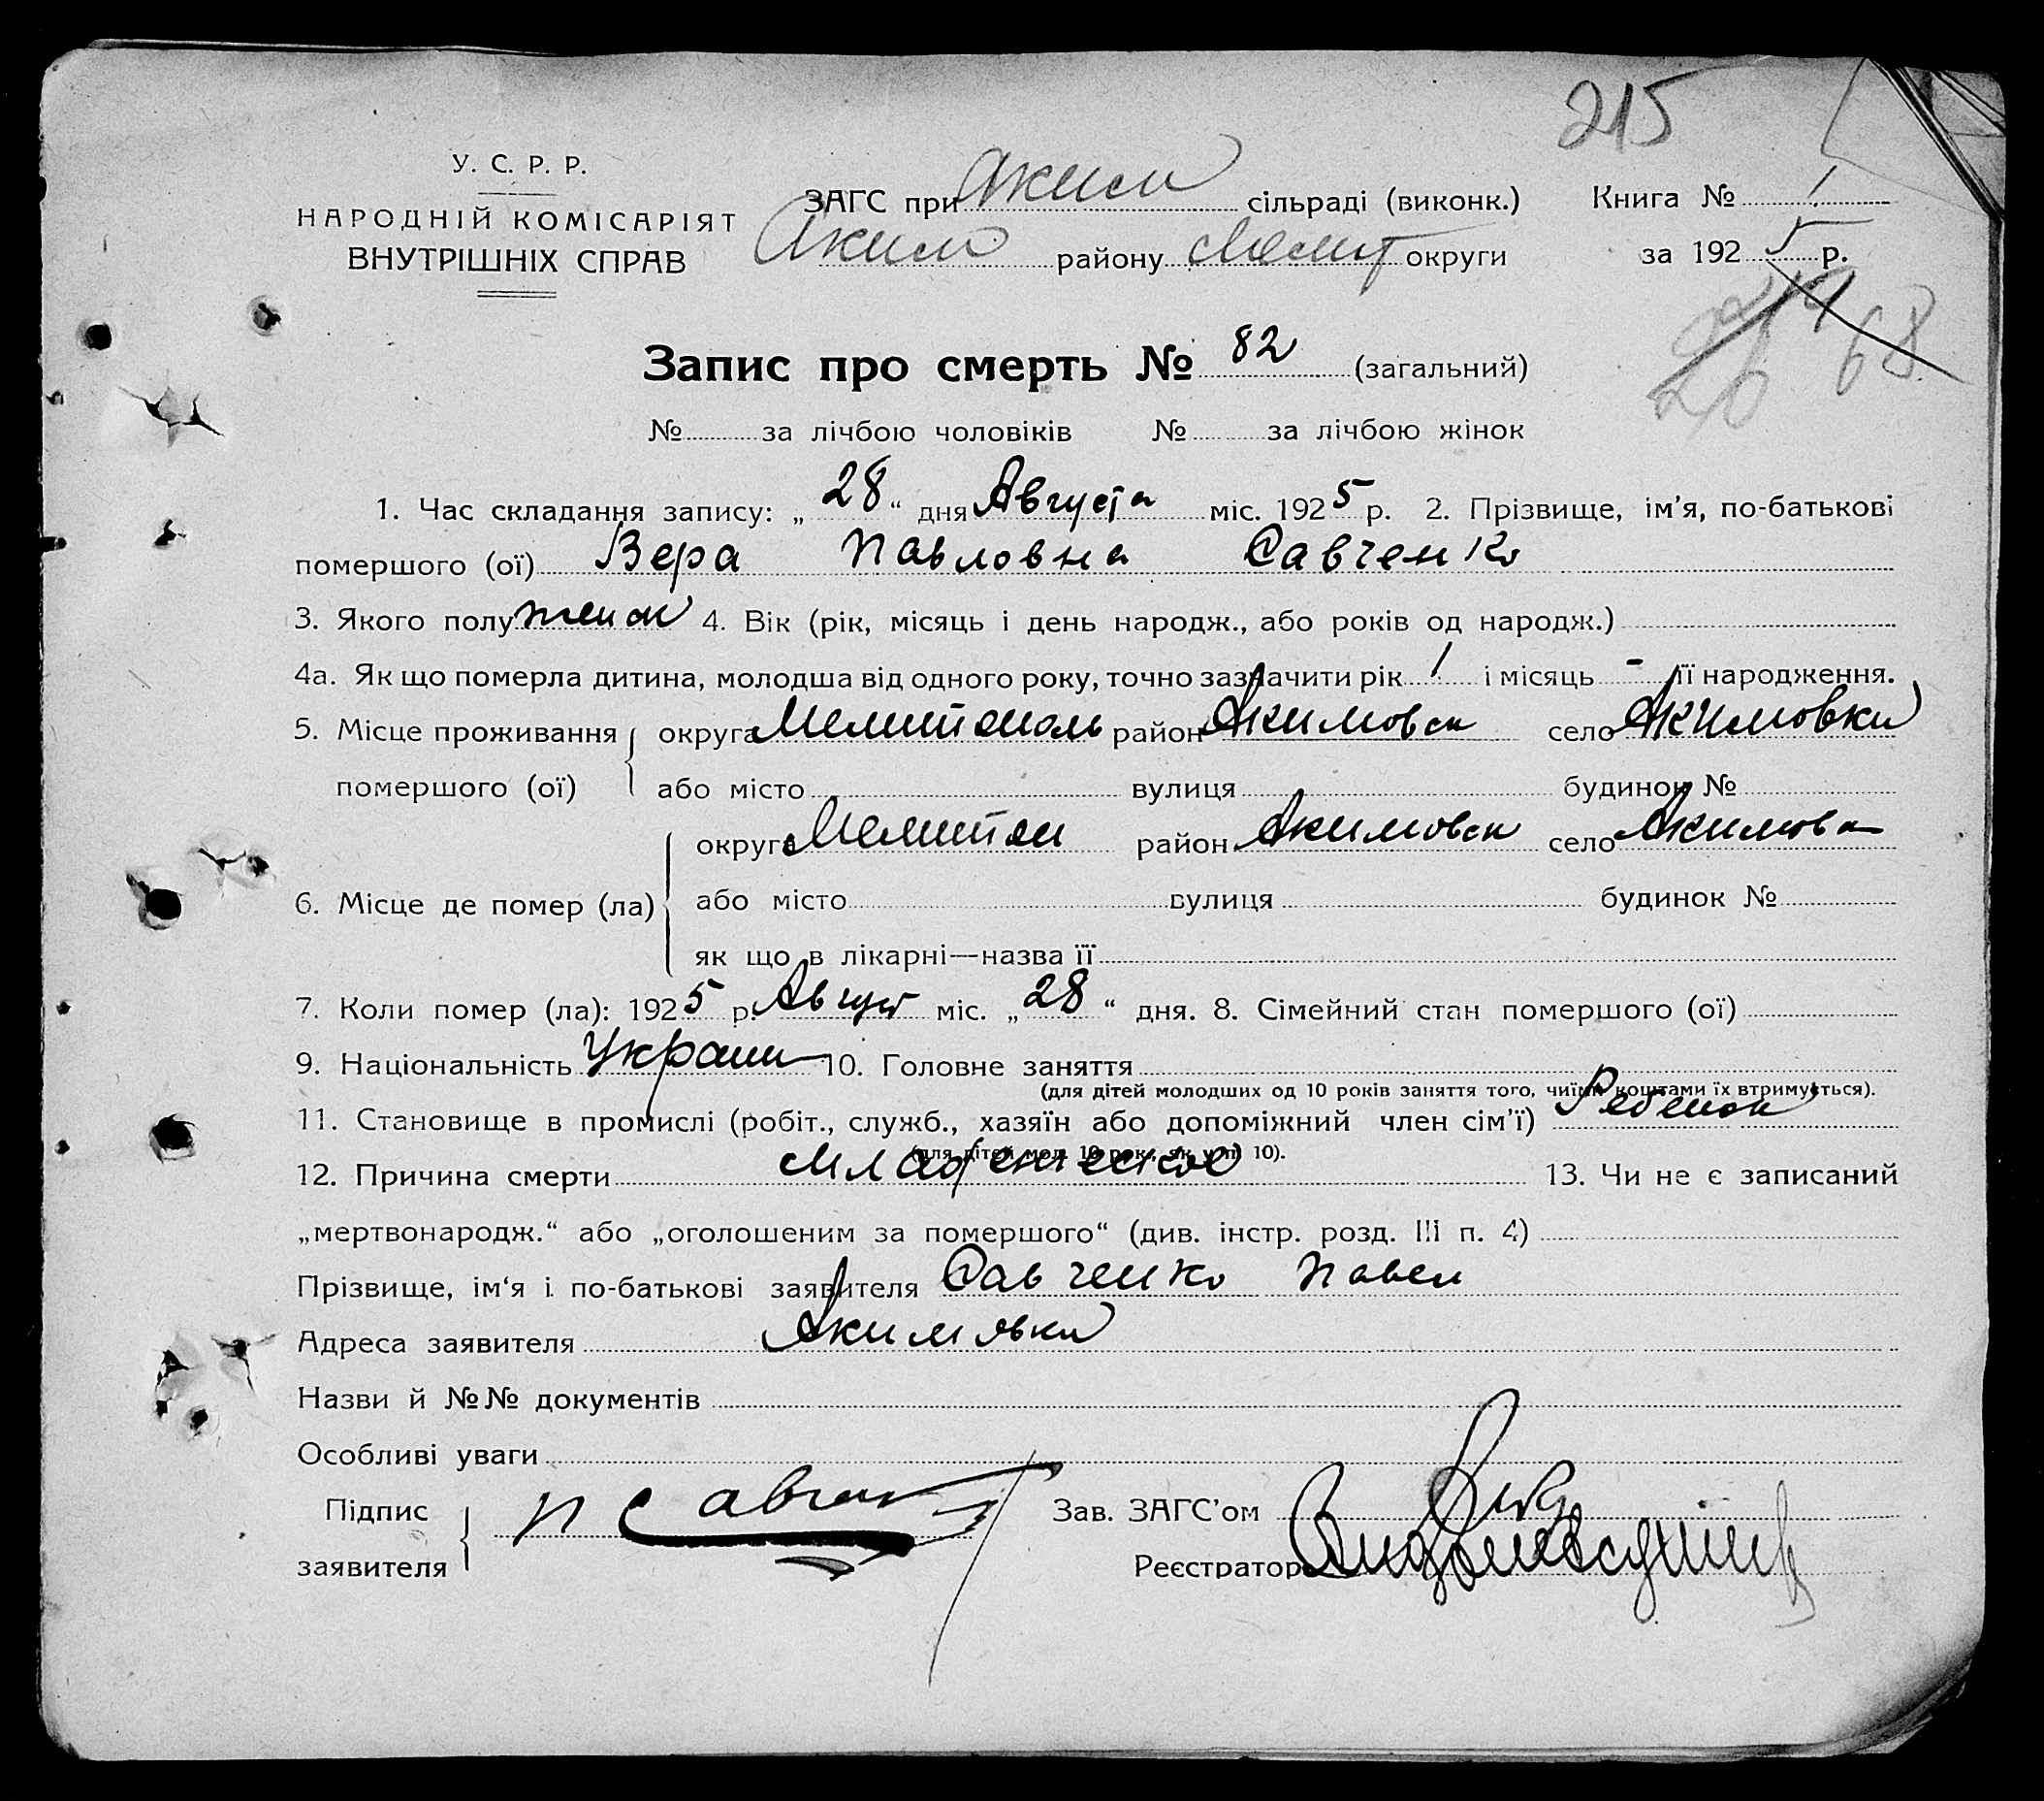 215
У. С. Р. Р.
НАРОДНІЙ КОМІСАРІЯТ
ВНУТРІШНІХ СПРАВ
ЗАГС при Аким сільраді (виконк.) Книга № 1
Аким району Мелит округи за 1925 р.
68
26
Запис про смерть № 82 (загальний)
№ за лічбою чоловіків № за лічбою жінок
1. Час складання запису: „28“ дня Августа міс. 1925 р. 2. Прізвище, ім’я, по-батькові
помершого (ої) Вера Павловна Савченко
3. Якого полу женск 4. Вік (рік, місяць і день народж., або років од народж.)
4а. Як що померла дитина, молодша від одного року, точно зазначити рік 1 і місяць - її народження.
5. Місце проживання округа Мелитополь район Акимовск село Акимовки
помершого (ої) або місто вулиця будинок №
округа Мелитоп район Акимовск село Акимовка
6. Місце де помер (ла) або місто вулиця будинок №
як що в лікарні—назва її
7. Коли помер (ла): 1925 р. Август міс. „28“ дня. 8. Сімейний стан помершого (ої)
9. Національність Украин 10. Головне заняття
(для дітей молодших од 10 років заняття того, чиїми коштами їх втримується).
11. Становище в промислі (робіт., служб., хазяїн або допоміжний член сім’ї) Ребенок
(для дітей мол. 10 рок., як у п. 10).
12. Причина смерти Младенческое 13. Чи не є записаний
„мертвонародж.“ або „оголошеним за помершого“ (див. інстр. розд. III п. 4)
Прізвище, ім‘я і по-батькові заявителя Савченко Павел
Адреса заявителя Акимовки
Назви й №№ документів
Особливі уваги
Підпис П Савчен Зав. ЗАГС’ом
заявителя Реєстратор